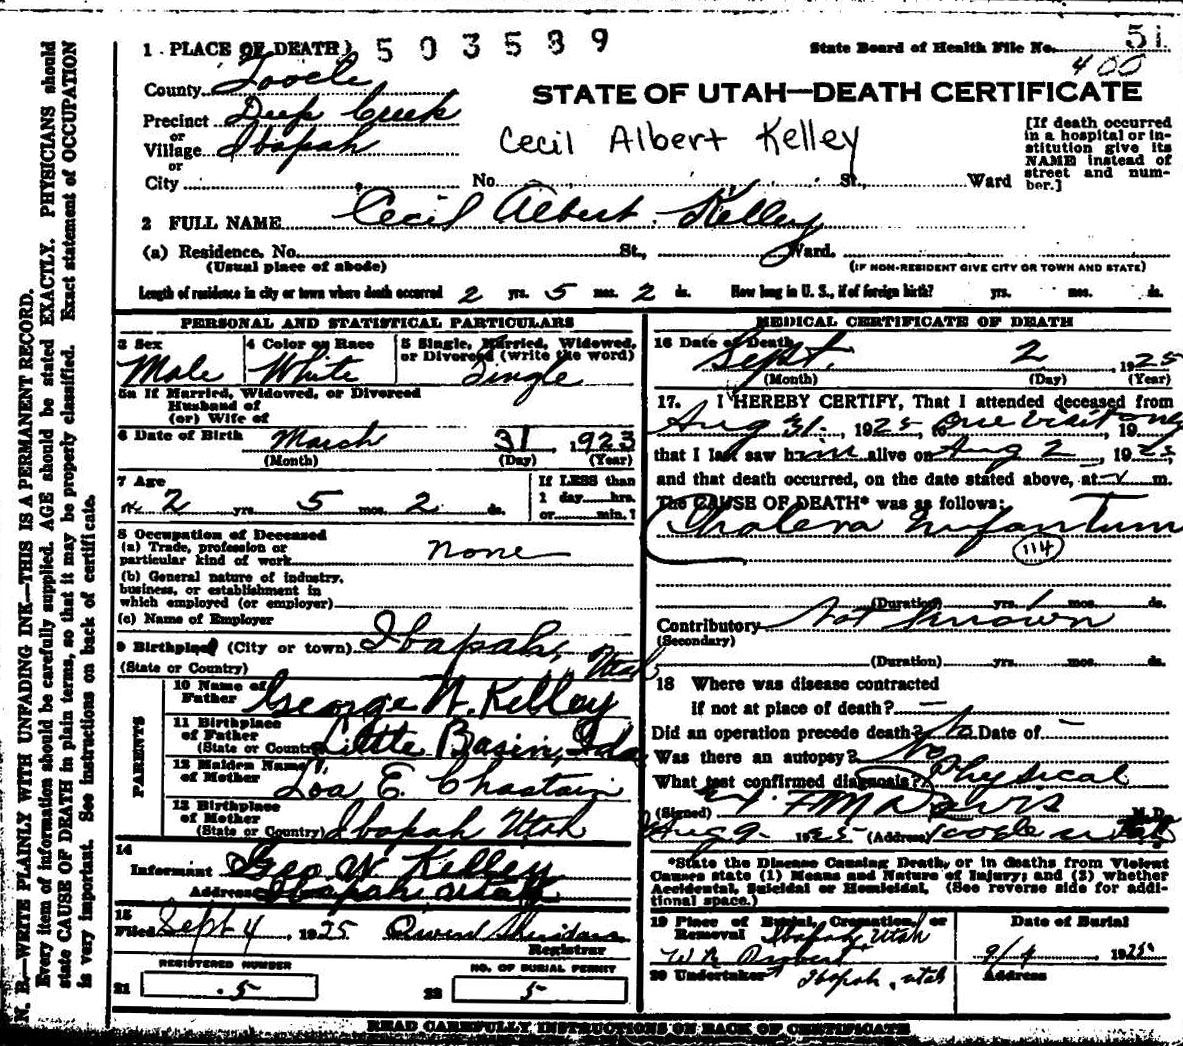 1 PLACE OF DEATH
503589
State Board of Health File No. 51
400
County Tooele
STATE OF UTAH—DEATH CERTIFICATE
Precinct Deep Creek
or
Village Ibapah
or
City
Cecil Albert Kelley
No. St., Ward
[If death occurred
in a hospital or in-
stitution give its
NAME instead of
street and num-
ber.]
2 FULL NAME Cecil Albert Kelley
(a) Residence. No. St., Ward.
(Usual place of abode)
(IF NON-RESIDENT GIVE CITY OR TOWN AND STATE)
Length of residence in city or town where death occurred 2 yrs. 5 mos. 2 ds. How long in U. S., if of foreign birth? yrs. mos. ds.
PERSONAL AND STATISTICAL PARTICULARS
3 Sex
Male
4 Color or Race
White
5 Single, Married, Widowed,
or Divorced (write the word)
Single
5a If Married, Widowed, or Divorced
Husband of
(or) Wife of
6 Date of Birth March 31, 1923
(Month) (Day) (Year)
7 Age
2 yrs. 5 mos. 2 ds.
If LESS than
1 day......hrs.
or......min.?
8 Occupation of Deceased
(a) Trade, profession or
particular kind of work none
(b) General nature of industry,
business, or establishment in
which employed (or employer)
(c) Name of Employer
9 Birthplace (City or town) Ibapah,
(State or Country) Utah
PARENTS
10 Name of
Father George W. Kelley
11 Birthplace
of Father
(State or Country) Little Basin, Ida
12 Maiden Name
of Mother Loa E. Chastain
13 Birthplace
of Mother
(State or Country) Ibapah Utah
14
Informant Geo W Kelley
Address Ibapah Utah
15
Filed Sept 4, 1925 Owen Sheridan
Registrar
REGISTERED NUMBER
21 5
NO. OF BURIAL PERMIT
22 5
MEDICAL CERTIFICATE OF DEATH
16 Date of Death
Sept. 2, 1925
(Month) (Day) (Year)
17. I HEREBY CERTIFY, That I attended deceased from
Aug 31, 1925, to one visit only, 19
that I last saw him alive on Aug 2, 1925,
and that death occurred, on the date stated above, at m.
The CAUSE OF DEATH* was as follows:
Cholera Infantum
114
(Duration) yrs. 1 mos. ds.
Contributory Not Known
(Secondary)
(Duration) yrs. mos. ds.
18 Where was disease contracted
if not at place of death? —
Did an operation precede death? No Date of —
Was there an autopsy? No
What test confirmed diagnosis? Physical
(Signed) M Davis M.D.
Aug 9. 1925 (Address) Tooele Utah
*State the Disease Causing Death, or in deaths from Violent
Causes state (1) Means and Nature of Injury; and (2) whether
Accidental, Suicidal or Homicidal. (See reverse side for addi-
tional space.)
19 Place of Burial, Cremation, or
Removal Ibapah Utah
Date of Burial
9/4 1925
W R
20 Undertaker Ibapah, Utah
Address
READ CAREFULLY INSTRUCTIONS ON BACK OF CERTIFICATE
N. B.—WRITE PLAINLY WITH UNFADING INK—THIS IS A PERMANENT RECORD.
Every item of information should be carefully supplied. AGE should be stated EXACTLY. PHYSICIANS should
state CAUSE OF DEATH in plain terms, so that it may be properly classified. Exact statement of OCCUPATION
is very important. See instructions on back of certificate.